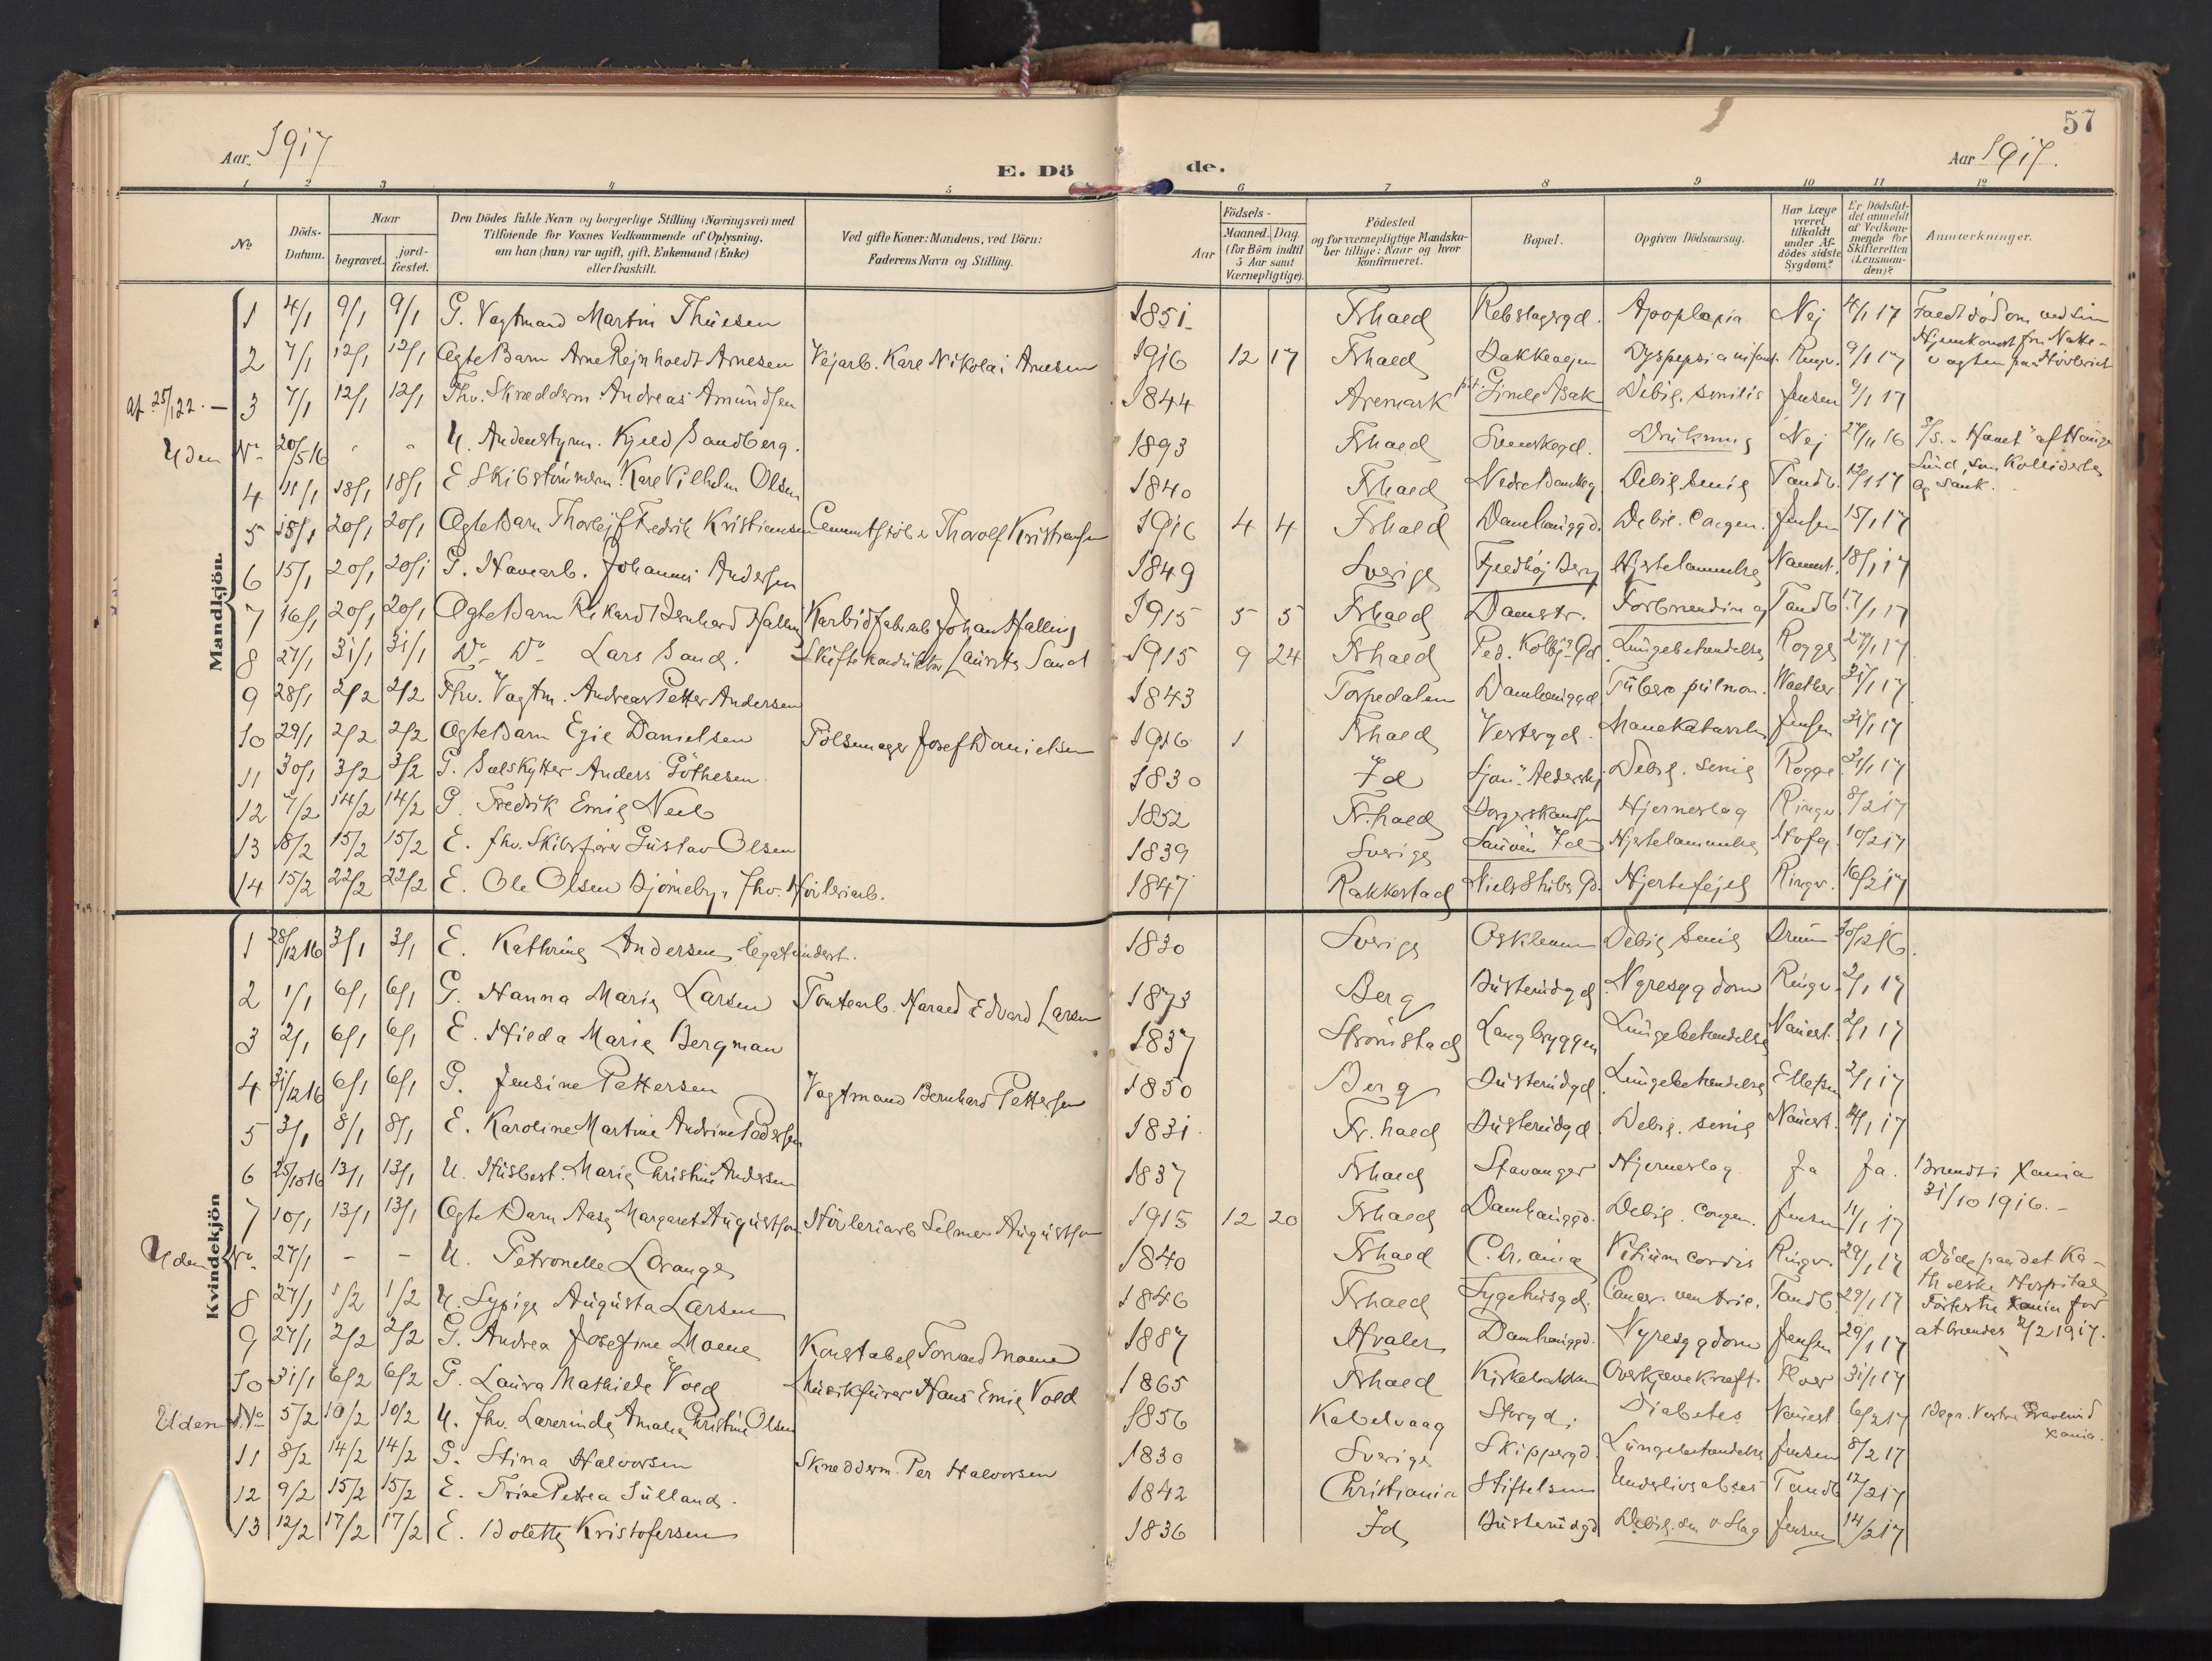 57
Aar. 1917
E. Döde.
Aar 1917.
1 2 3 4 5 6 7 8 9 10 11 12
No.
Döds-Datum.
Naar
begravet.
jord-fæstet.
Den Dödes fulde Navn og borgerlige Stilling (Næringsvei) med
Tilföiende for Voxnes Vedkommende af Oplysning,
om han (hun) var ugift, gift, Enkemand (Enke)
eller fraskilt.
Ved gifte Koner: Mandens, ved Börn:
Faderens Navn og Stilling.
Födsels-
Aar
Maaned. Dag.
(for Börn indtil
5 Aar samt
Værnepligtige).
Födested
og for værnepligtige Mandska-
ber tillige: Naar og hvor
konfirmeret.
Bopæl.
Opgiven Dödsaarsag.
Har Læge
været
tilkaldt
under Af-
dödes sidste
Sygdom?
Er Dödsfal-
det anmeldt
af Vedkom-
mende for
Skifteretten
(Lensman-
den)?
Anmærkninger.
Mandkjön.
1 4/1 9/1 9/1 G. Vagtmand Martin Thuesen 1851 Frhald Rebslagergd. Apoplexia Nej 4/1 17 Faldt död om ved sin
Hjemkomst fra Natte-
vagten paa Hövleriet
2 7/1 12/1 12/1 Ægte Barn Arne Rejnholdt Arnesen Vejarb. Karl Nikolai Arnesen 1916 12 17 Frhald Bakkeagen Dyspepsia infant. Ringv. 9/1 17
Af 25/1 22. — 3 7/1 12/1 12/1 Fhv. Skrædderm Andreas Amundsen 1844 Aremark Gimle Asak Debil. senilis Jensen 9/1 17
Uden No 20/5 16 " " U. Andenstyrm. Kjeld Sandberg. 1893 Frhald Svenskegd. Drukning Nej 27/11 16 S/S. "Hauet" af Hauge
sund, som kolliderte
og sank.
4 11/1 18/1 18/1 E Skibstömmerm. Karl Vilhelm Olsen 1840 Frhald Nedre Bankeg Debil. senil Tandb. 12/1 17
5 15/1 20/1 20/1 Ægte Barn Thorlejf Fredrik Kristiansen Cementstöber Thorolf Kristiansen 1916 4 4 Frhald Damhauggd. Debil. congen. Jensen 15/1 17
6 15/1 20/1 20/1 G. Havearb. Johannes Andersen 1849 Sverige Fjeldhöj Berg Hjertelammelse Nauert. 18/1 17
7 16/1 20/1 20/1 Ægte Barn Rikard Bernhard Halling Karbidfabarb Johan Halling 1915 5 5 Frhald Damstr. Forbrænding Tandb. 17/1 17
8 27/1 31/1 31/1 Do Do Lars Sand. Skiftekonduktör Lauritz Sand 1915 9 24 Frhald Ped. Kolbj. Gd Lungebetændelse Rogge 27/1 17
9 28/1 2/2 2/2 Fhv. Vagtm. Andreas Petter Andersen 1843 Torpedalen Damhauggd Tuberc pulmon. Walther 31/1 17
10 29/1 2/2 2/2 Ægte Barn Egil Danielsen Pölsemager Josef Danielsen 1916 1 Frhald Vestergd. Mavekatarrh Jensen 31/1 17
11 30/1 3/2 3/2 G. Selskytter Anders Göthesen 1830 Id Debil. senil Rogge 31/1 17
12 7/2 14/2 14/2 G. Fredrik Emil Neeb 1852 Fr.hald Borgerskandsen Hjerneslag Ringv. 8/2 17
13 8/2 15/2 15/2 E. fhv. Skibsförer Gustav Olsen 1839 Sverige Sauöen Id Hjertelammelse 10/2 17
14 15/2 22/2 22/2 E. Ole Olsen Björneby, fhv. Hövleriarb. 1847 Rakkestad Niels Stubs Gd. Hjertefejl Ringv. 16/2 17
Kvindekjön
1 28/12 16 3/1 3/1 E. Kathrine Andersen, legatunderst. 1830 Sverige Oskleven Debil. senil Drum 30/12 16.
2 1/1 6/1 6/1 G. Hanna Marie Larsen Tomtearb. Harald Edvard Larsen 1873 Berg Busterudgd Nyresygdom Ringv. 2/1 17
3 2/1 6/1 6/1 E. Hilda Marie Bergman 1837 Strömstad Langbryggen Lungebetændelse Nauert. 2/1 17
4 31/12 16 6/1 6/1 G. Jensine Pettersen Vagtmand Bernhard Pettersen 1850 Berg Busterudgd Lungebetændelse Ellefsen 2/1 17
5 3/1 8/1 8/1 E. Karoline Martine Andrine Pedersen 1831 Fr.hald Busterudgd Debil. senil Nauert. 4/1 17
6 25/10 16 13/1 13/1 U. Husbest. Marie Christine Andersen 1837 Frhald Stavanger Hjerneslag Ja Ja. Brændt i Xania
31/10 1916. -
7 10/1 13/1 13/1 Ægte Barn Aase Margaret Augustson Hövleriarb Selmer Augustson 1915 12 20 Frhald Damhauggd. Debil. congen. Jensen 11/1 17
Uden No 27/1 - - U. Petronelle Lorange 1840 Frhald C.h.ania Vitium cordis Ringv. 29/1 17 Döde paa det Ka-
tholske Hospital
Xania for
at brændes 2/2 1917.
8 27/1 1/2 1/2 U. Sypige Augusta Larsen 1846 Frhald Sygehusgd. Cancer. ventric. Tandb. 29/1 17
9 27/1 2/2 2/2 G. Andrea Josefine Moene Konstabel Torvald Moene 1887 Hvaler Damhauggd. Nyresygdom Jensen 29/1 17
10 31/1 6/2 6/2 G. Laura Mathilde Vold Musikfurer Hans Emil Vold 1865 Frhald Kirkebakken Overkjævekræft. 31/1 17
Uden No 5/2 10/2 10/2 U. fhv. Lærerinde Amalie Christine Olsen 1856 Kabelvaag Storgd. Diabetes Nauert 6/2 17 Begr. Vestre Gravlund
Xania.
11 8/2 14/2 14/2 G. Stina Halvorsen Skrædderm. Per Halvorsen 1830 Sverige Skippergd. Lungebetændelse Jensen 8/2 17
12 9/2 15/2 15/2 E. Trine Petrea Sulland. 1842 Christiania Stiftelsen Underlivsabses Tandb 12/2 17
13 12/2 17/2 17/2 E. Bolette Kristofersen 1836 Id Busterudgd Debil. sen o Slag Jensen 14/2 17